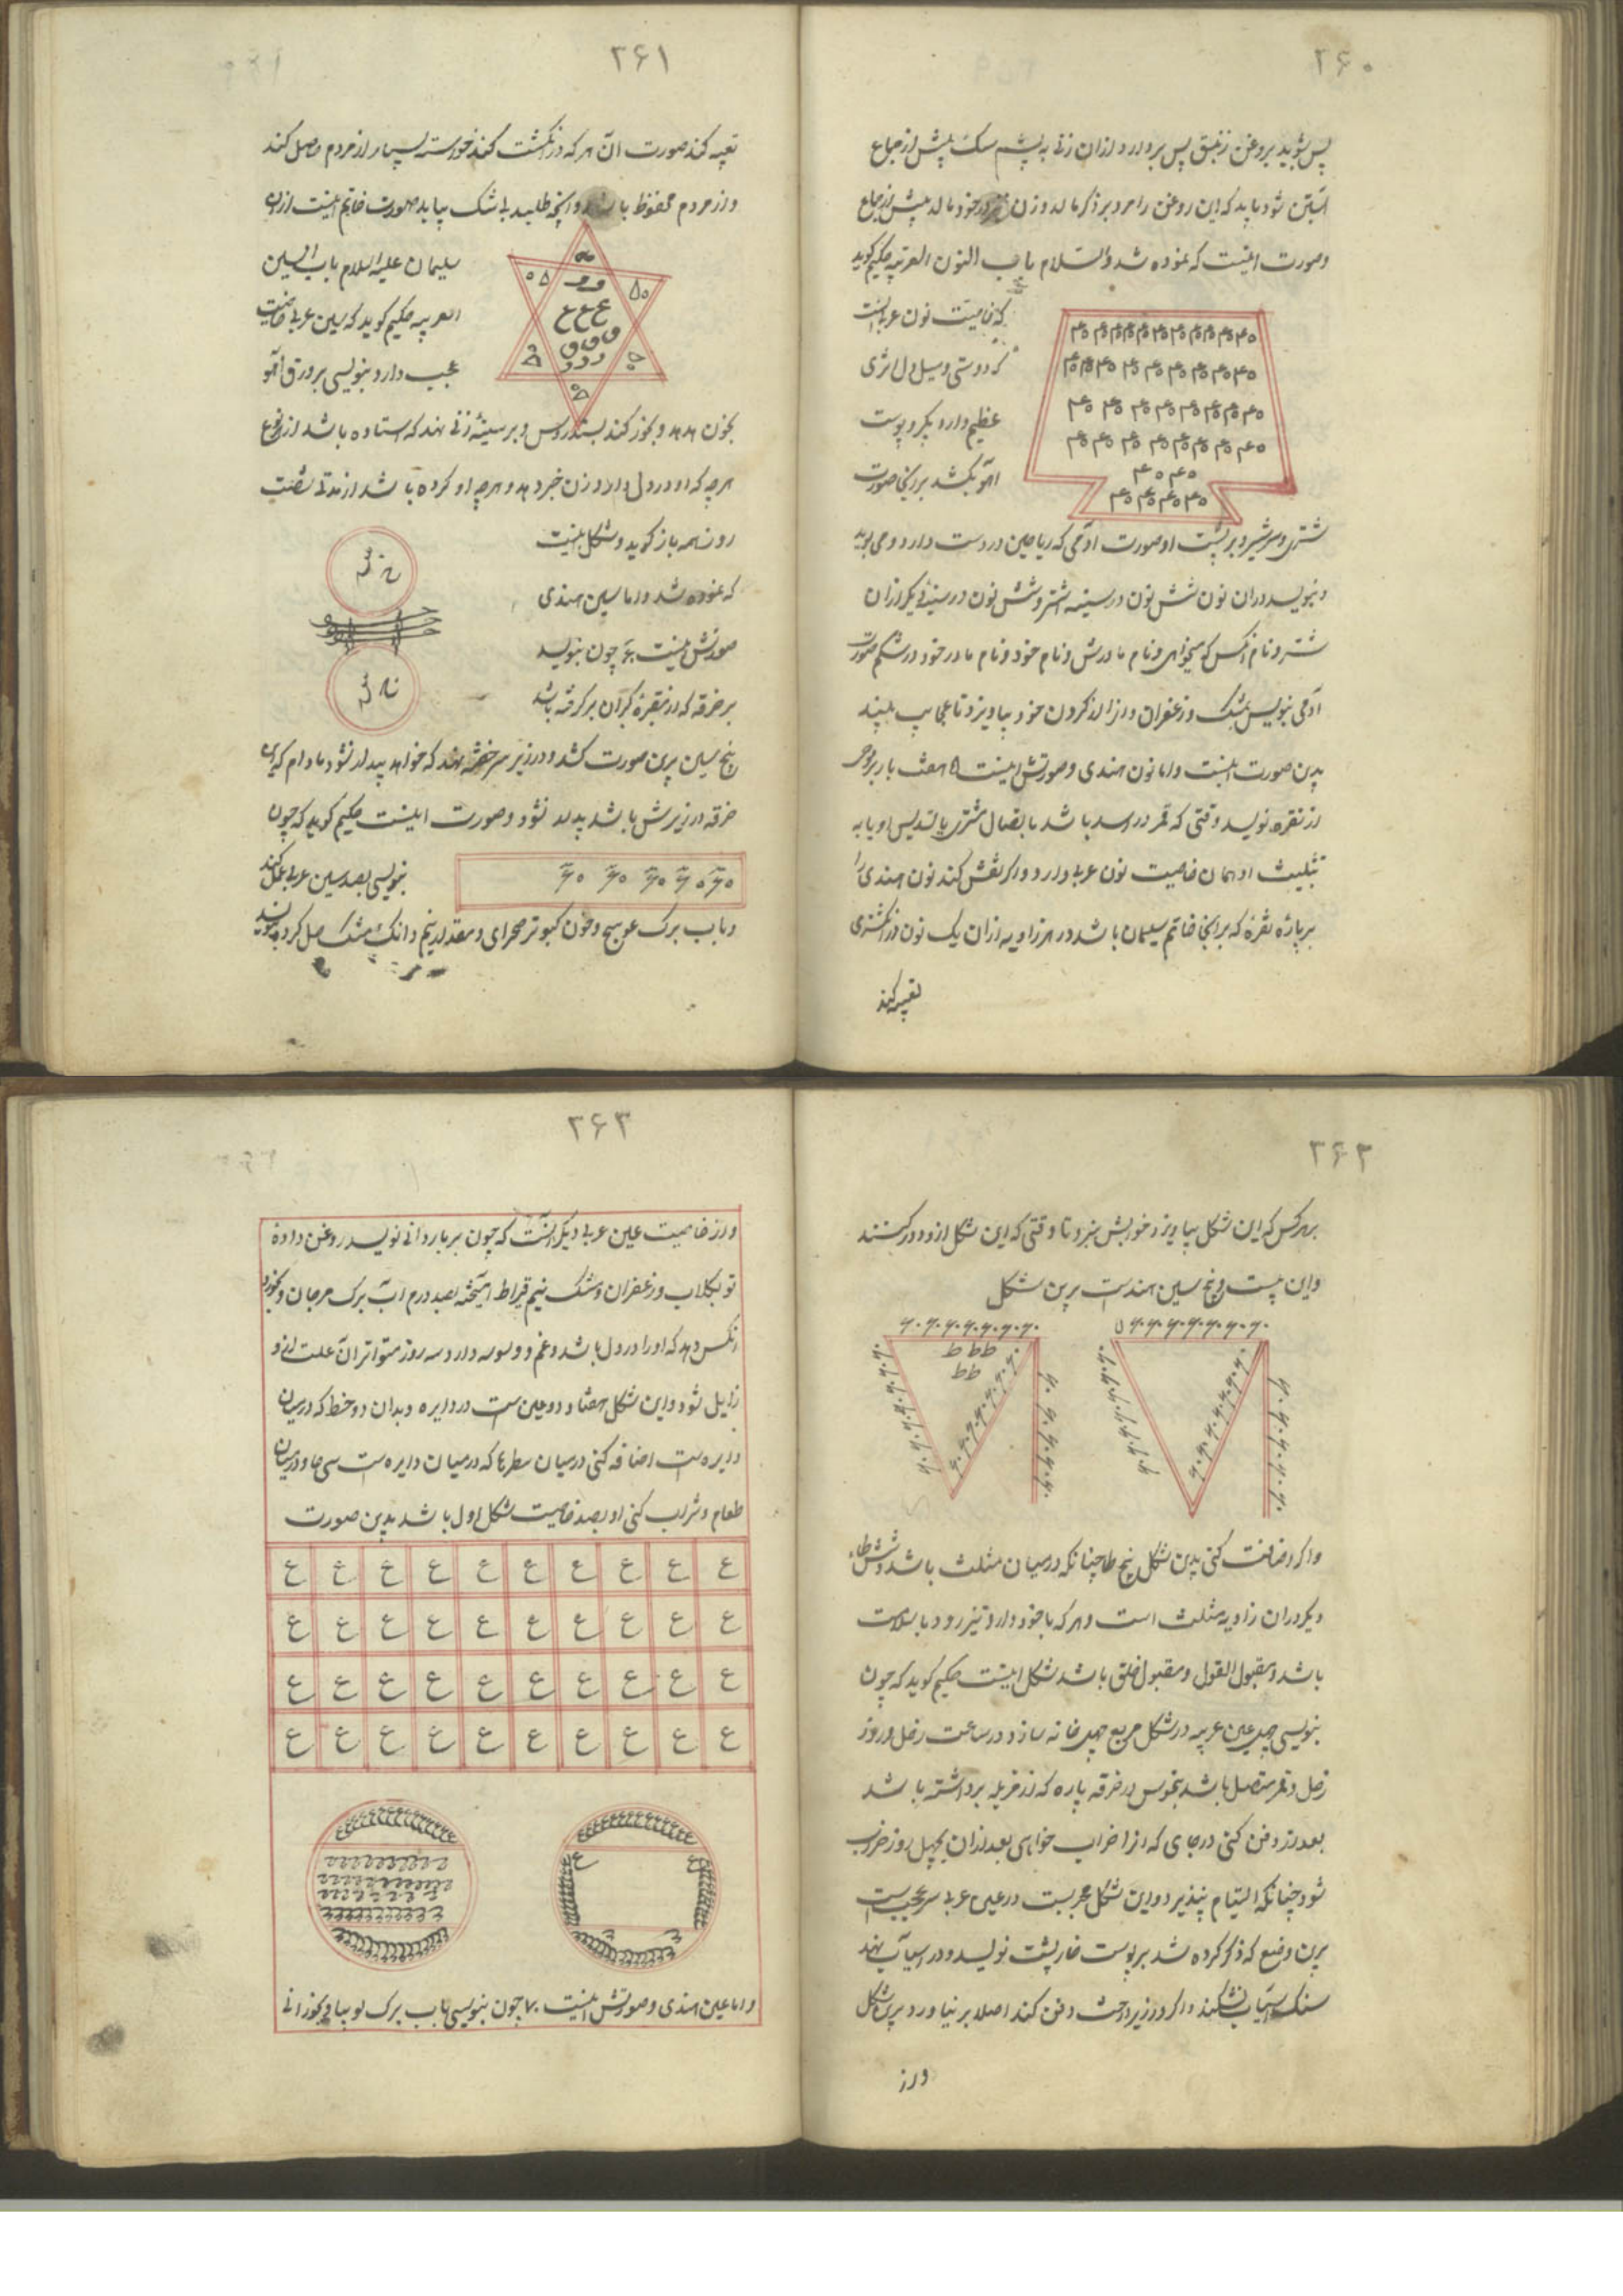 ۲۶۰
پس بشوید بروغن زنبق پس بردارد ازان زنی به پشم سک پیش از جماع
آبستن شود باید که این روغن را مرد بر ذکر مالد و زن در خود مالد پیش از جماع
وصورت اینست که نموده شد والسلام باب النون العربیه حکیم کوید
که خاصیت نون عربی انست
که دوستی ومیل دل اثری
عظیم دارد بکیرد پوست
آهو بکشد برانجا صورت
شتری وسر شیر وبر پشت او صورت آدمی که ریاحین در دست دارد ومی بوید
وبنویسد دران نون شش نون در سینه اشتر وشش نون در سینهٔ دیکر ازان
شتر ونام انکس که میخواهی ونام مادرش ونام خود ونام مادر خود در شکم صورت
آدمی بنویس بمشک وزعفران واز گردن خود بیاویزد تا عجایب ببیند
بدین صورت اینست واما نون هندی وصورتش اینست ۵ هفت بار بر لوح
از نقره نویسد وقتی که قمر در اسد باشد باتصال مشتری یا تسدیس او یا به
تثلیث او همان خاصیت نون عربی دارد واکر نقش کند نون هندی را
بر پارهٔ نقره که برانجا خاتم سلیمان باشد در هر زاویه ازان یک نون در انکشتری
تعبیه کند
۲۶۱
تعبیه کند صورت آن هر که در انکشت کند خواسته بسیار از مردم حاصل کند
واز مردم محفوظ باشد وانچه طلبد بی شک بیابد صورت خاتم اینست ازان
سلیمان علیه السلام باب السین
العربیه حکیم کوید که سین عربی خاصیت
عجب دارد بنویسی بر ورق آهو
بخون هدهد وبخور کند بسندروس وبر سینهٔ زنی نهد که استاده باشد از نوع
هرچه که او در دل دارد زن خبر دهد وهرچه او کرده باشد از مدتی شصت
روز همه باز کوید وشکل اینست
که نموده شد واما سین هندی
صورتش اینست ۶۰ چون بنویسد
بر خرقه که از مقبرهٔ کبران بر کرفته باشد
پنج سین برین صورت کشد ودر زیر سر خفته نهد که خواهد بیدار نشود مادام که این
خرقه در زیرش باشد بیدار نشود وصورت اینست حکیم کوید که چون
۶۰ ۶۰ ۶۰ ۶۰ ۶۰
بنویسی بصد سین عربی بمل کند
وباب برک عوسج وخون کبوتر صحرای ومقدار نیم دانک مشک حل کرده بنویسد
۲۶۲
بهر کس که این شکل بیاویزد خوابش نبرد تا وقتی که این شکل از و دور کنند
واین بیست وپنج سین هندست برین شکل
۶۰ ۶۰ ۶۰ ۶۰ ۶۰ ۶۰ ۶۰
ط ط ط
ط ط
واکر اضافت کنی بدین شکل پنج طا چنانکه در میان مثلث باشد وشش طاء
دیکر دران زاویه مثلث است وهر که با خود دارد تیز رود با سلامت
باشد ومقبول القول ومقبول خلق باشد شکل اینست حکیم کوید که چون
بنویسی چهل عین عربیه در شکل مربع چهل خانه سازد در ساعت زحل وروز
زحل وقمر متصل باشد بنحوس در خرقه پاره که از مزبله برداشته باشد
بعد از دفن کنی در جای که انرا خراب خواهی بعد ازان بچهل روز خراب
شود چنانکه التیام نپذیرد واین شکل مجربست در عین عربی سر عجیبست
برین وضع که ذکر کرده شد بر پوست خارپشت نویسد ودر آسیاب نهد
سنک آسیاب بشکند واکر در زیر درخت دفن کند اصلا بر نیاورد برین شکل
واز
۲۶۳
واز خاصیت عین عربی دیکر انست که چون بر بار دانی نویسد روغن داده
تو بکلاب وزعفران ومشک نیم قیراط آمیخته بصد درم آب برک مرجان وبخورد
انکس دهد که او را درد دل باشد وغم ووسوسه دارد سه روز متواتر آن علت ازو
زایل شود واین شکل هفتاد ودو عین ست در دایره وبدان دو خط که در میان
دایره ست اضافه کنی در میان سطرها که در میان دایره ست سی ها ودر میان
طعام وشراب کنی او بضد خاصیت شکل اول باشد بدین صورت
ع ع ع ع ع ع ع ع ع ع
ع ع ع ع ع ع ع ع ع ع
ع ع ع ع ع ع ع ع ع ع
ع ع ع ع ع ع ع ع ع ع
واما عین هندی وصورتش اینست ۷۰ چون بنویسی باب برک لوبیا